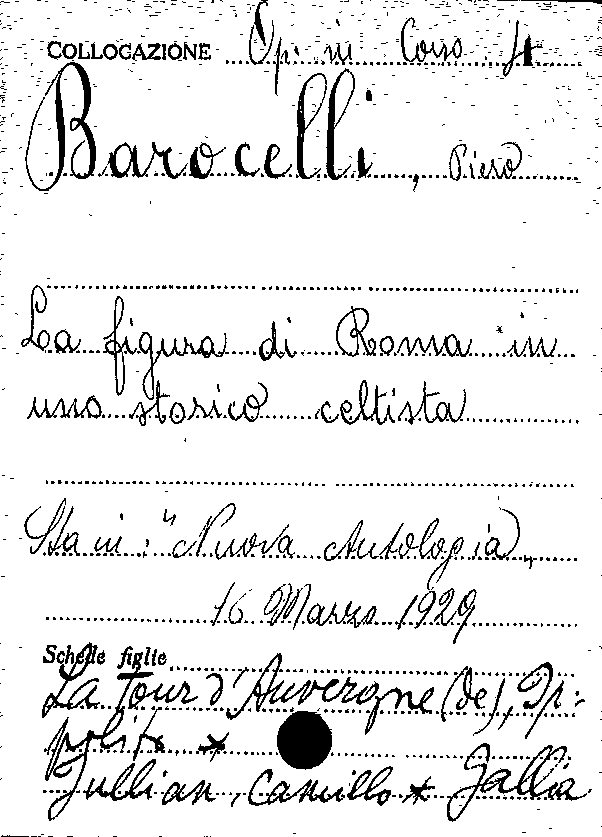 COLLOCAZIONE Op. in Corso 4
Barocelli, Piero
La figura di Roma in
uno storico celtista
Sta in: "Nuova Antologia",
16 Marzo 1929
Schede figlie
La Tour d'Auvergne (de), Ip:
polito *
Jullian, Camillo * Gallia